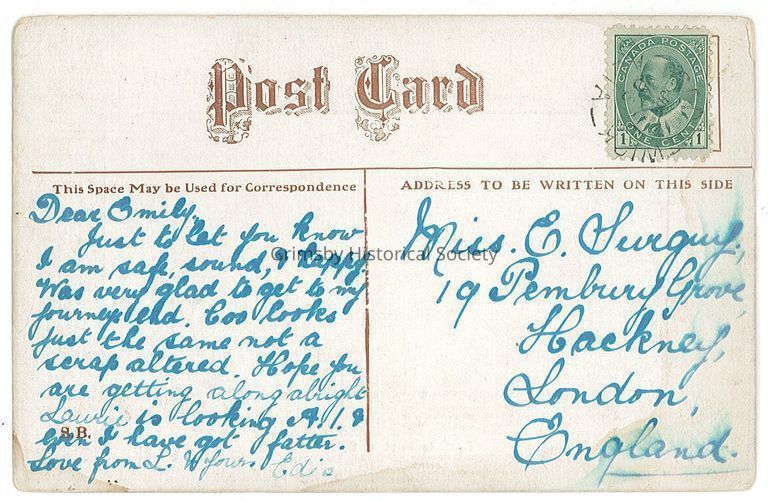 Post Card
CANADA POSTAGE
1 ONE CENT 1
This Space May be Used for Correspondence
ADDRESS TO BE WRITTEN ON THIS SIDE
Dear Emily,
Just to let you know
I am safe, sound, & happy.
Was very glad to get to my
journeys end. Coo looks
just the same not a
scrap altered. Hope you
are getting along alright
Laurie is looking A.1. &
even I have got fatter.
Love from L. & yours Edie
S.B.
Miss. E. Surguy,
19 Pembury Grove,
Hackney,
London,
England.
Grimsby Historical Society